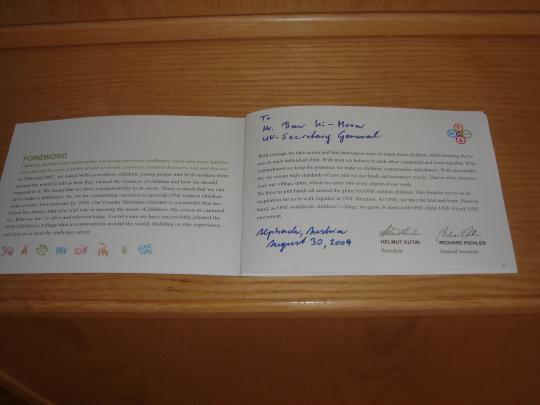 FOREWORD
Children, families and communities are facing increased challenges. More and more families
are suffering because of political and economic pressures, natural disasters, war and disease.
In 2006 and 2007, we asked SOS co-workers, children, young people and SOS mothers from
around the world to tell us how they viewed the situation of children and how we should
respond to it. We found that we have a responsibility to do more. There is much that we can
do to make a difference. So, we are committing ourselves to provide ONE million children
with a home, love and care by 2016. Our Founder Hermann Gmeiner is a reminder that
has always played a vital role in meeting the needs of children. His vision as captured
in „Who we are" is alive and relevant today. For 60 years we have successfully planted the
SOS Children's Village idea in communities around the world. Building on this experience
will help us to meet the challenges ahead.
To
Mr. Ban Ki-Moon
UN-Secretary General
With courage we take action and find innovative ways to reach more children, while keeping the fo-
cus on each individual child. With trust we believe in each other's potential and learn together. With
commitment we keep the promises we make to children, communities and donors. With accountabi-
lity we ensure high standards of care and we use funds and resources wisely. That is what characte-
rises our village spirit, which we carry into every aspect of our work.
We have to join hands all around the globe for ONE million children. This booklet serves as an
inspiration for us to walk together in ONE direction. As ONE, we take the lead and learn. Hand in
hand, as ONE worldwide children's village, we grow. It starts with ONE child, ONE friend, ONE
movement.
Alpbach, Austria
August 30, 2009
HELMUT KUTIN RICHARD PICHLER
President General Secretary